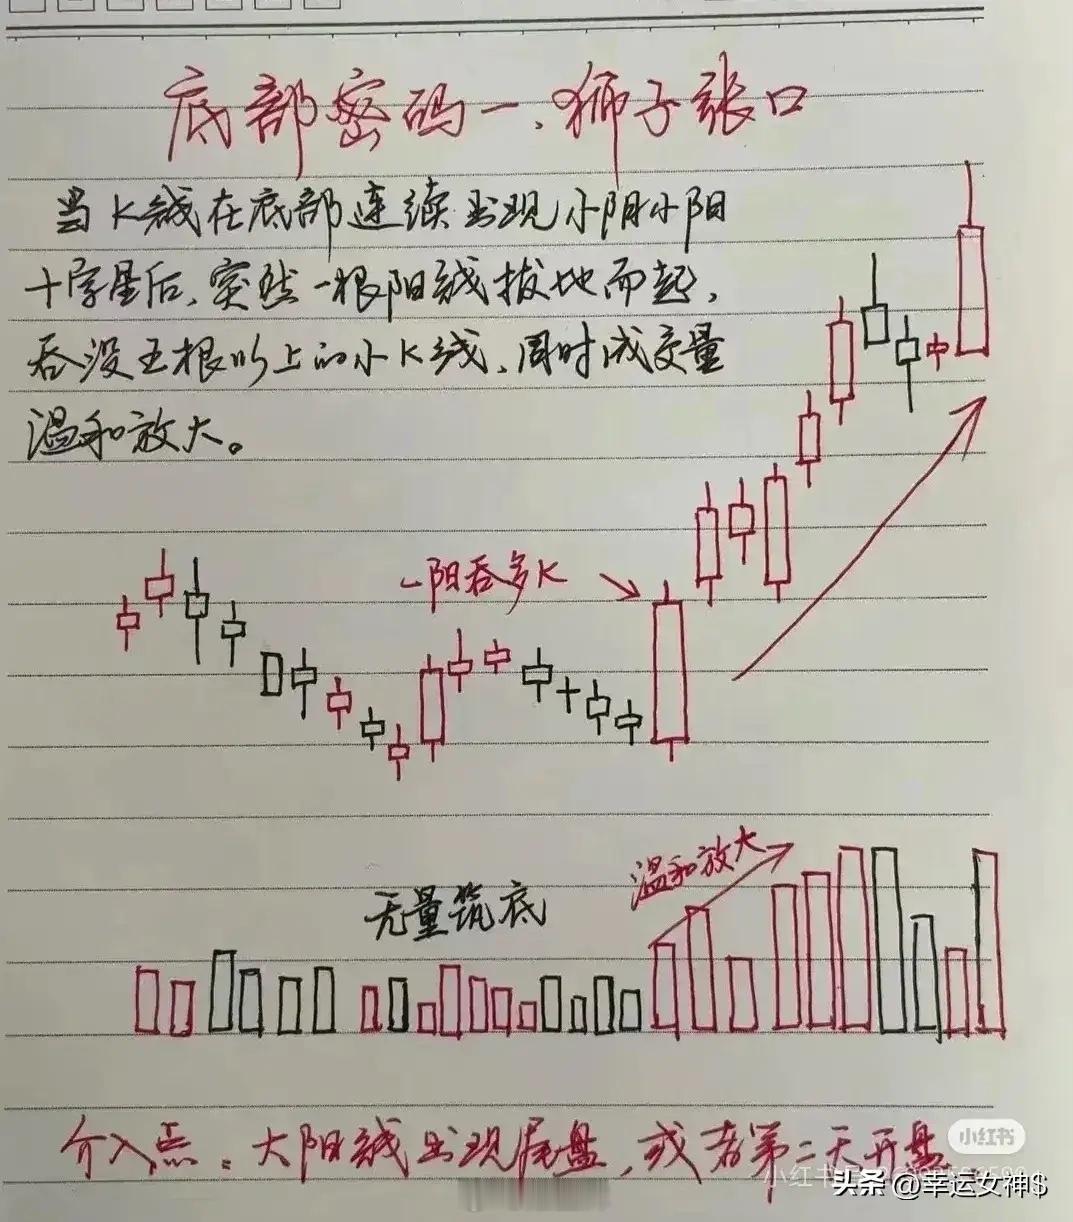 底部密码一、狮子张口
当K线在底部连续出现小阴小阳
十字星后、突然一根阳线拔地而起，
吞没五根以上的小K线、同时成交量
温和放大。
一阳吞多K
温和放大
无量筑底
介入点：大阳线出现尾盘，或者第二天开盘
小红书
头条 @幸运女神$